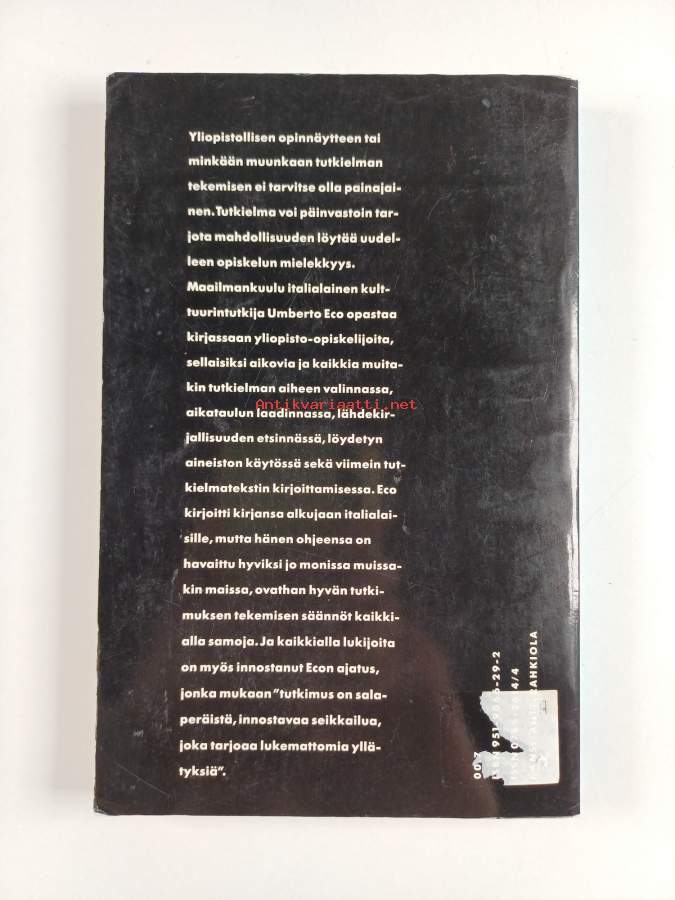 Yliopistollisen opinnäytteen tai
minkään muunkaan tutkielman
tekemisen ei tarvitse olla painajai-
nen. Tutkielma voi päinvastoin tar-
jota mahdollisuuden löytää uudel-
leen opiskelun mielekkyys.
Maailmankuulu italialainen kult-
tuurintutkija Umberto Eco opastaa
kirjassaan yliopisto-opiskelijoita,
sellaisiksi aikovia ja kaikkia muita-
kin tutkielman aiheen valinnassa,
aikataulun laadinnassa, lähdekir-
jallisuuden etsinnässä, löydetyn
aineiston käytössä sekä viimein tut-
kielmatekstin kirjoittamisessa. Eco
kirjoitti kirjansa alkujaan italialai-
sille, mutta hänen ohjeensa on
havaittu hyviksi jo monissa muissa-
kin maissa, ovathan hyvän tutki-
muksen tekemisen säännöt kaikki-
alla samoja. Ja kaikkialla lukijoita
on myös innostanut Econ ajatus,
jonka mukaan "tutkimus on sala-
peräistä, innostavaa seikkailua,
joka tarjoaa lukemattomia yllä-
tyksiä".
Antikvariaatti.net
ISBN 951-
-29-2
ISSN
4/4